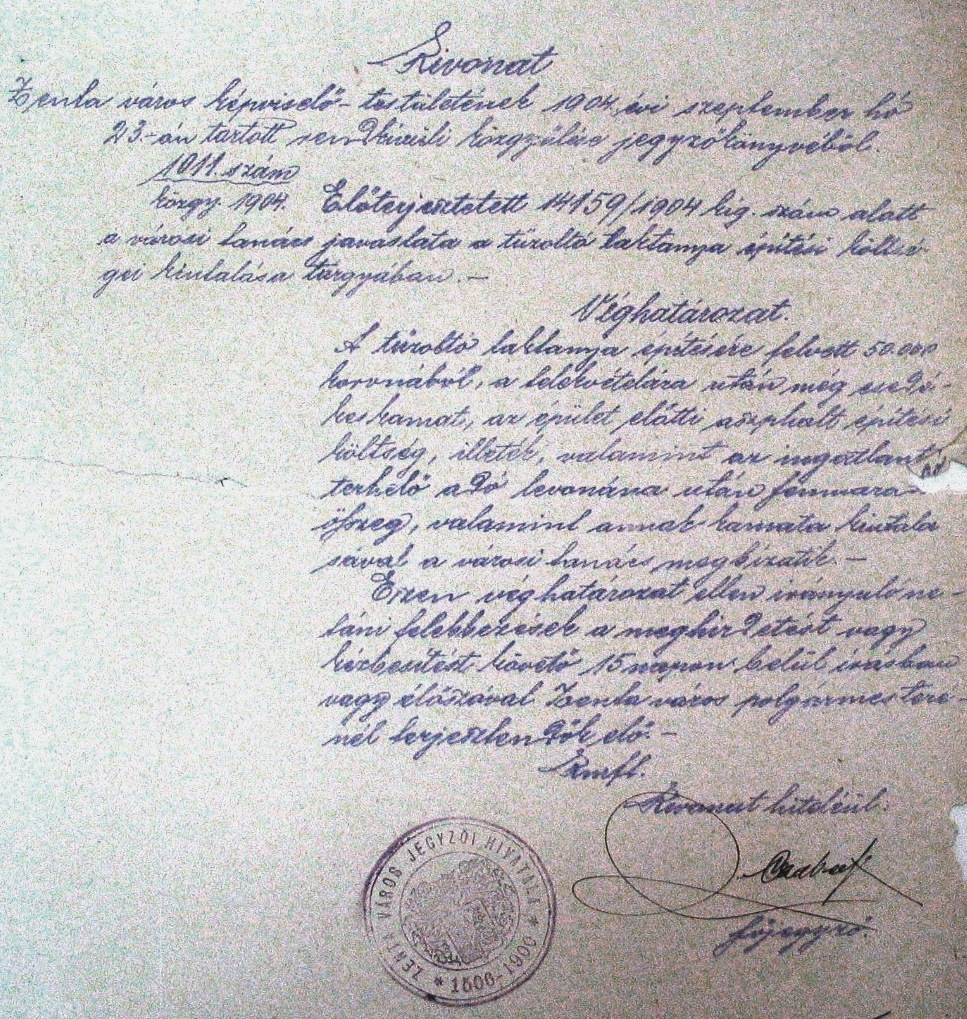 Kivonat
Zenta város képviselő-testületének 1904. évi szeptember hó
23-án tartott rendkivüli közgyülése jegyzőkönyvéből.
1011. szám
közgy. 1904. Előterjesztetett 14159/1904 kig. szám alatt
a városi tanács javaslata a tüzoltó laktanya épitési költsé-
gei kiutalása tárgyában. -
Véghatározat.
A tüzoltó laktanya épitésére felvett 50.000
koronából, a telekvételára után még esedé-
kes kamat, az épület előtti aszphalt épitési
költség, illeték, valamint az ingatlant
terhelő adó levonása után fennmara-
összeg, valamint annak kamata kiutalá
sával a városi tanács megbizatik. -
Ezen véghatározat ellen irányuló ne-
táni felebbezések a meghirdetést vagy
kézbesitést követő 15 napon belül irásban
vagy élőszóval Zenta város polgármesteré-
nél terjesztendők elő. -
Kmft.
Kivonat hiteléül:
főjegyző.
ZENTA VÁROS JEGYZŐI HIVATALA * 1506-1900 *